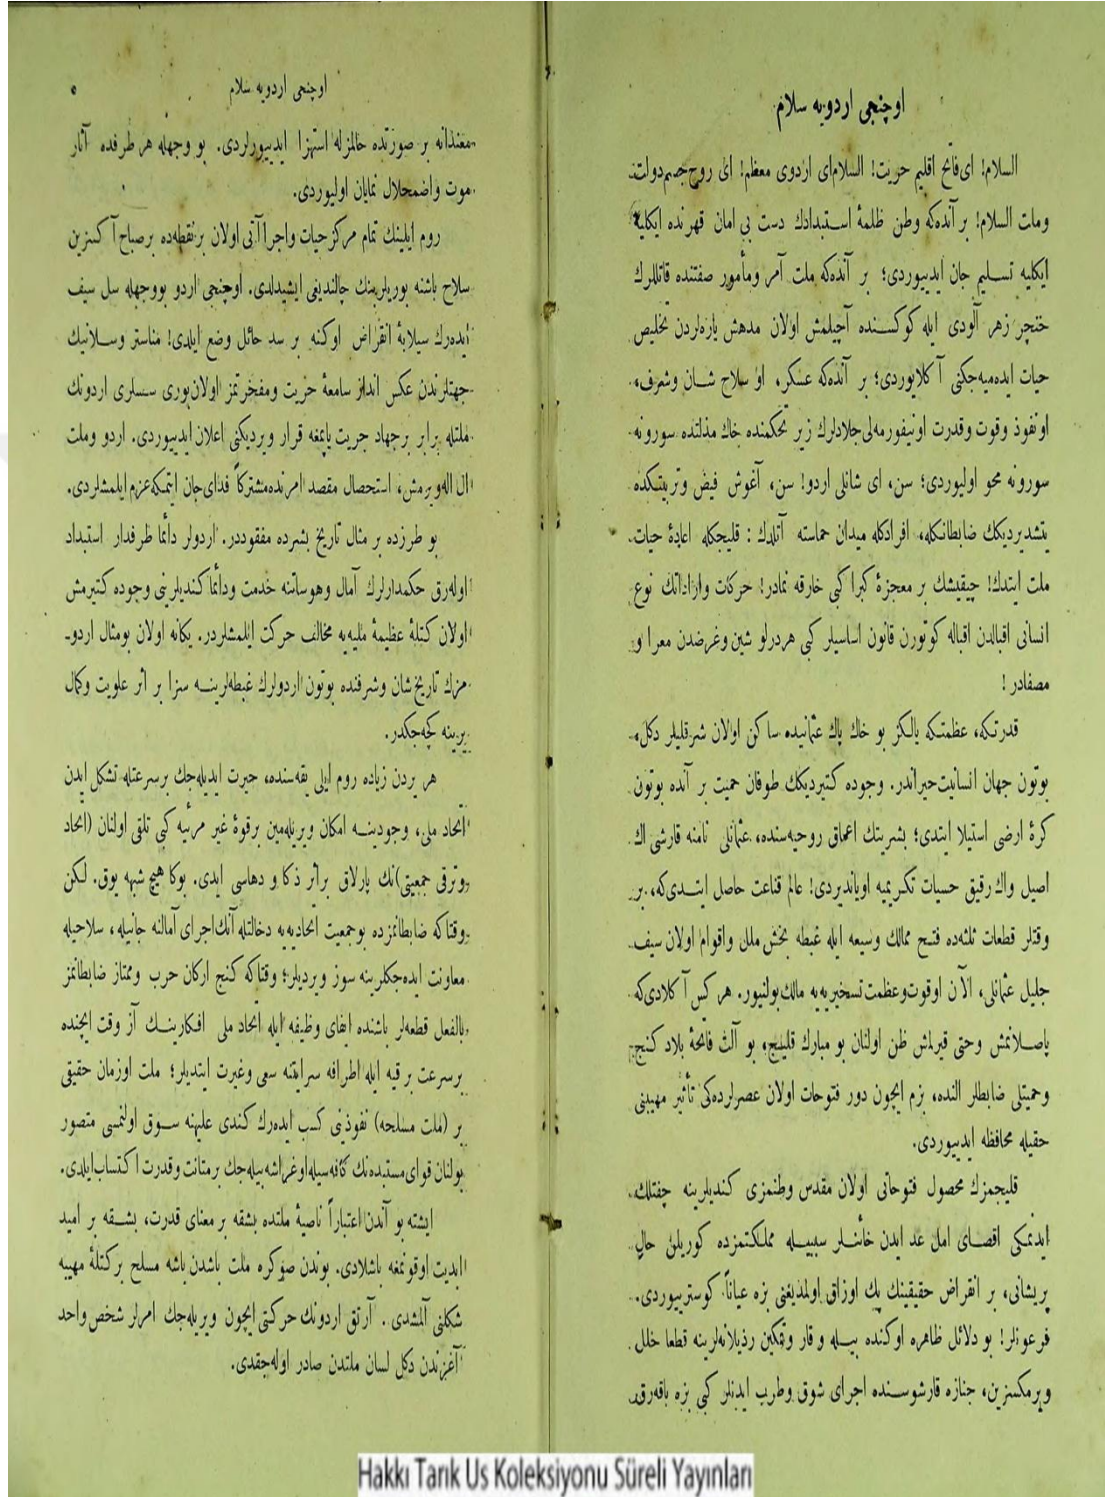 اوچنجی اردویه سلام
السلام! ای فاتح اقلیم حریت! السلام ای اردوی معظم! ای روح جسم دولت
وملت السلام! بر آنده‌که وطن ظلمهٔ استبدادك دست بی امان قهرنده ایکلیه
ایکلیه تسلیم جان ایدییوردی؛ بر آنده‌که ملت آمر ومأمور صفتنده قاتللرك
خنجر زهر آلودی ایله کوکسنده آچیلمش اولان مدهش یاره‌لردن تخلیص
حیات ایده‌میه‌جکنی آکلایوردی؛ بر آنده‌که عسکر، او سلاح شان وشرف،
اونفوذ وقوت وقدرت اونیفورمه‌لی جلادلرك زیر تحکمنده خاك مذلتده سورونه
سورونه محو اولیوردی؛ سن، ای شانلی اردو! سن، آغوش فیض وتربیتکده
یتشدیردیکك ضابطانکله، افرادکله میدان حماسته آتلدك : قلیجکله اعادهٔ حیات
ملت ایتدك! چیقیشك بر معجزهٔ کبرا کبی خارقه نمادر! حرکات وازاداتك نوع
انسانی اقبالدن اقباله کوتورن قانون اساسیلر کبی هردرلو شین وغرضدن معرا و
مصفادر !
قدرتکه، عظمتکه یالکز بو خاك پاك عثمانیده ساکن اولان شرقلیلر دکل،
بوتون جهان انسانیت حیراندر. وجوده کتیردیکك طوفان حمیت بر آنده بوتون
کرهٔ ارضی استیلا ایتدی؛ بشریتك اعماق روحیه‌سنده، عثمانلی نامنه قارشی اك
اصیل واك رقیق حسیات تکریمیه اویاندیردی! عالم قناعت حاصل ایتدی‌که، بر
وقتلر قطعات ثلثه‌ده فتح ممالك وسیعه ایله غبطه بخش ملل واقوام اولان سیف
جلیل عثمانی، الآن اوقوت وعظمت تسخیریه‌یه مالك بولنیور. هر کس آکلادی‌که
پاصلانمش وحتی قیرلمش ظن اولنان بو مبارك قلیج، بو آلت فاتحهٔ بلاد کنج
وحمیتلی ضابطلر النده، بزم ایچون دور فتوحات اولان عصرلرده‌کی تأثیر مهیبنی
حقیله محافظه ایدییوردی.
قلیجمزك محصول فتوحاتی اولان مقدس وطنمزی کندیلرینه چفتلك
ایدنمکی اقصای امل عد ایدن خائنلر سببیله مملکتمزده کوریلن حال
پریشانی، بر انقراض حقیقینك پك اوزاق اولمدیغنی بزه عیاناً کوستریوردی.
فرعونلر! بو دلائل ظاهره اوکنده بیله وقار وتمکین رذیلانه‌لرینه قطعا خلل
ویرمکسزین، جنازه قارشوسنده اجرای شوق وطرب ایدنلر کبی بزه باقه‌رق
اوچنجی اردویه سلام ٥
معندانه بر صورتده حالمزله استهزا ایدییورلردی. بو وجهله هر طرفده آثار
موت واضمحلال نمایان اولیوردی.
روم ایلینك تمام مرکز حیات واجراآتی اولان بر نقطه‌ده بر صباح آکسزین
سلاح باشنه بوریلرینك چالندیغی ایشیدلدی. اوچنجی اردو بووجهله سل سیف
ایده‌رك سیلابهٔ انقراض اوکنه بر سد حائل وضع ایلدی! مناستر وسلانیك
جهتلرندن عکس انداز سامعهٔ حریت ومفخرتمز اولان بوری سسلری اردونك
ملتله برابر برجهاد حریت یاپمغه قرار ویردیکنی اعلان ایدییوردی. اردو وملت
ال اله‌ویرمش، استحصال مقصد امرنده مشترکاً فدای جان ایتمکه عزم ایلمشلردی.
بو طرزده بر مثال تاریخ بشرده مفقوددر. اردولر دائما طرفدار استبداد
اوله‌رق حکمدارلرك آمال وهوساتنه خدمت ودائما کندیلرینی وجوده کتیرمش
اولان کتلهٔ عظیمهٔ ملیه‌یه مخالف حرکت ایلمشلردر. یکانه اولان بومثال اردو-
مزك تاریخ شان وشرفنده بوتون اردولرك غبطه‌لرینه سزا بر اثر علویت وکمال
یرینه کچه‌جکدر.
هر یردن زیاده روم ایلی یقه‌سنده، حیرت ایدیله‌جك برسرعتله تشکل ایدن
اتحاد ملی، وجودینه امکان ویریله‌مین برقوهٔ غیر مرئیه کبی تلقی اولنان (اتحاد
وترقی جمعیتی)نك پارلاق براثر ذکا و دهاسی ایدی. بوکا هیچ شبهه یوق. لکن
وقتاکه ضابطانمزده بوجمعیت اتحادیه‌یه دخالتله آنك اجرای آمالنه جانیله، سلاحیله
معاونت ایده‌جکلرینه سوز ویردیلر؛ وقتاکه کنج ارکان حرب وممتاز ضابطانمز
بالفعل قطعه‌لر باشنده ایفای وظیفه ایله اتحاد ملی افکارینك آز وقت ایچنده
برسرعت برقیه ایله اطرافه سرایتنه سعی وغیرت ایتدیلر؛ ملت اوزمان حقیقی
بر (ملت مسلحه) نفوذینی کسب ایده‌رك کندی علیهنه سوق اولنمسی متصور
بولنان قوای مستبده‌نك کافه‌سیله اوغراشه‌بیله‌جك برمتانت وقدرت اکتساب ایلدی.
ایشته بو آندن اعتباراً ناصیهٔ ملتده بشقه بر معنای قدرت، بشقه بر امید
ابدیت اوقونمغه باشلادی. بوندن صوکره ملت باشدن باشه مسلح برکتلهٔ مهیبه
شکلنی آلمشدی . آرتق اردونك حرکتی ایچون ویریله‌جك امرلر شخص واحد
آغزندن دکل لسان ملتدن صادر اوله‌جقدی.
Hakkı Tarık Us Koleksiyonu Süreli Yayınları